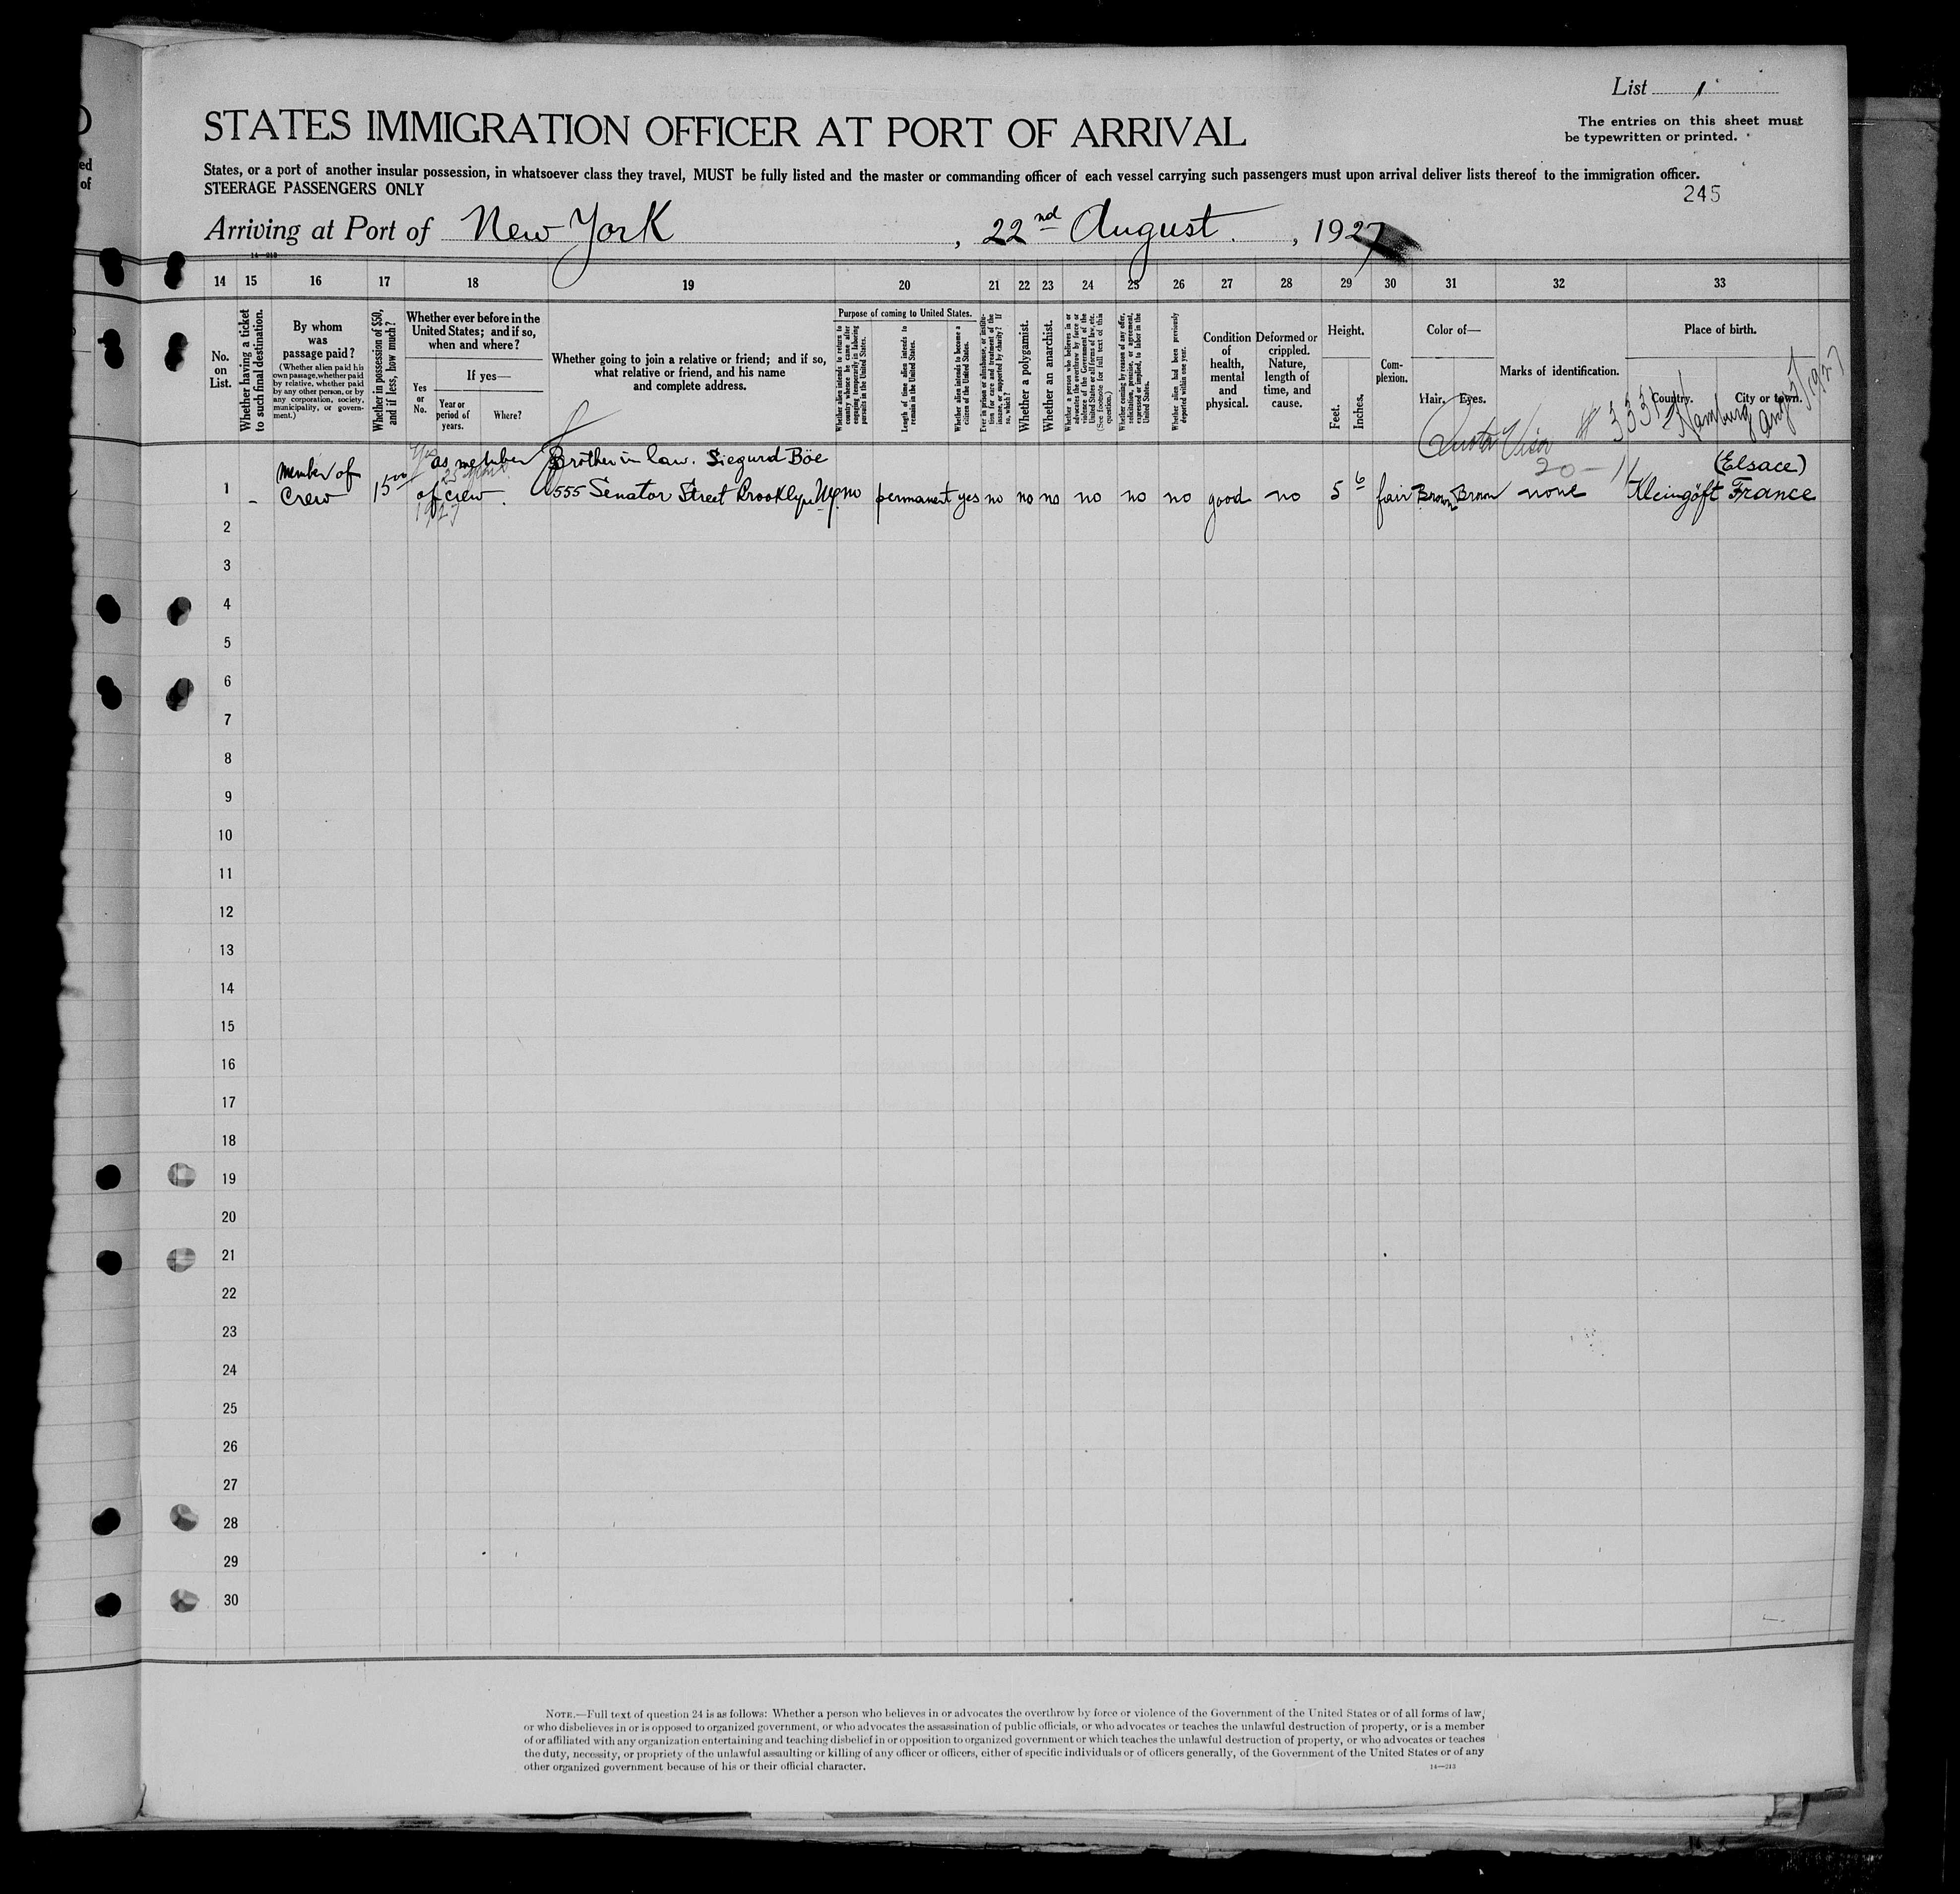 List 1
STATES IMMIGRATION OFFICER AT PORT OF ARRIVAL
The entries on this sheet must
be typewritten or printed.
States, or a port of another insular possession, in whatsoever class they travel, MUST be fully listed and the master or commanding officer of each vessel carrying such passengers must upon arrival deliver lists thereof to the immigration officer.
STEERAGE PASSENGERS ONLY
245
Arriving at Port of New York, 22nd August, 1927
14 15 16 17 18 19 20 21 22 23 24 25 26 27 28 29 30 31 32 33
No. on List.
Whether having a ticket to such final destination.
By whom was passage paid?
(Whether alien paid his own passage, whether paid by relative, whether paid by any other person, or by any corporation, society, municipality, or government.)
Whether in possession of $50, and if less, how much?
Whether ever before in the United States; and if so, when and where?
If yes—
Yes or No.
Year or period of years.
Where?
Whether going to join a relative or friend; and if so, what relative or friend, and his name and complete address.
Purpose of coming to United States.
Whether alien intends to return to country whence he came after engaging temporarily in laboring pursuits in the United States.
Length of time alien intends to remain in the United States.
Whether alien intends to become a citizen of the United States.
Ever in prison or almshouse, or institution for care and treatment of the insane, or supported by charity? If so, which?
Whether a polygamist.
Whether an anarchist.
Whether a person who believes in or advocates the overthrow by force or violence of the Government of the United States or all forms of law, etc. (See footnote for full text of this question.)
Whether coming by reason of any offer, solicitation, promise, or agreement, expressed or implied, to labor in the United States.
Whether alien had been previously deported within one year.
Condition of health, mental and physical.
Deformed or crippled. Nature, length of time, and cause.
Height.
Feet. Inches.
Complexion.
Color of—
Hair. Eyes.
Marks of identification.
Place of birth.
Country. City or town.
Quota Visa # 3331 Hamburg Aug 5/1927
20-11
Yes as member Brother in law. Siegurd Böe (Elsace)
1 - Member of Crew 15 of crew. 1927 555 Senator Street Brooklyn Ny. no permanent yes no no no no no no good no 5 6 fair Brown Brown none Kleingöft France
2
3
4
5
6
7
8
9
10
11
12
13
14
15
16
17
18
19
20
21
22
23
24
25
26
27
28
29
30
NOTE.—Full text of question 24 is as follows: Whether a person who believes in or advocates the overthrow by force or violence of the Government of the United States or of all forms of law,
or who disbelieves in or is opposed to organized government, or who advocates the assassination of public officials, or who advocates or teaches the unlawful destruction of property, or is a member
of or affiliated with any organization entertaining and teaching disbelief in or opposition to organized government or which teaches the unlawful destruction of property, or who advocates or teaches
the duty, necessity, or propriety of the unlawful assaulting or killing of any officer or officers, either of specific individuals or of officers generally, of the Government of the United States or of any
other organized government because of his or their official character.
14—213